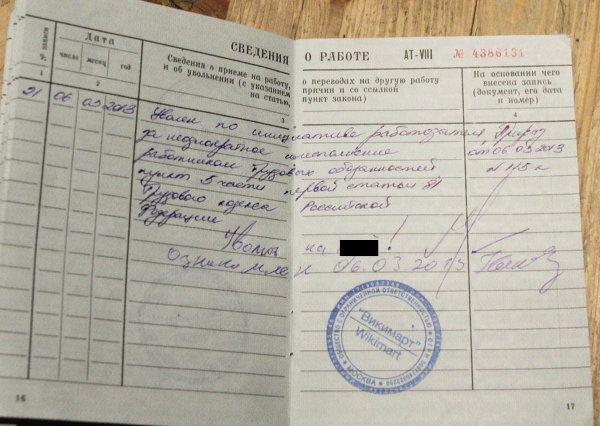 СВЕДЕНИЯ О РАБОТЕ АТ-VIII № 4386131
№ записи
Дата
число месяц год
Сведения о приеме на работу,
и об увольнении (с указанием
на статью,
о переводах на другую работу
причин и со ссылкой
пункт закона)
На основании чего
внесена запись
(документ, его дата
и номер)
1 2 3 4
21 06 03 2013 Уволен по инициативе работодателя Приказ
за неоднократное неисполнение от 06 03 2013
работником трудовых обязанностей
пункт 5 части первой статьи 81
Трудового кодекса Российской
Федерации
на !
Ознакомлен 06.03 2013
ОБЩЕСТВО С ОГРАНИЧЕННОЙ ОТВЕТСТВЕННОСТЬЮ
"Викимарт"
Wikimart
МОСКВА
16
17